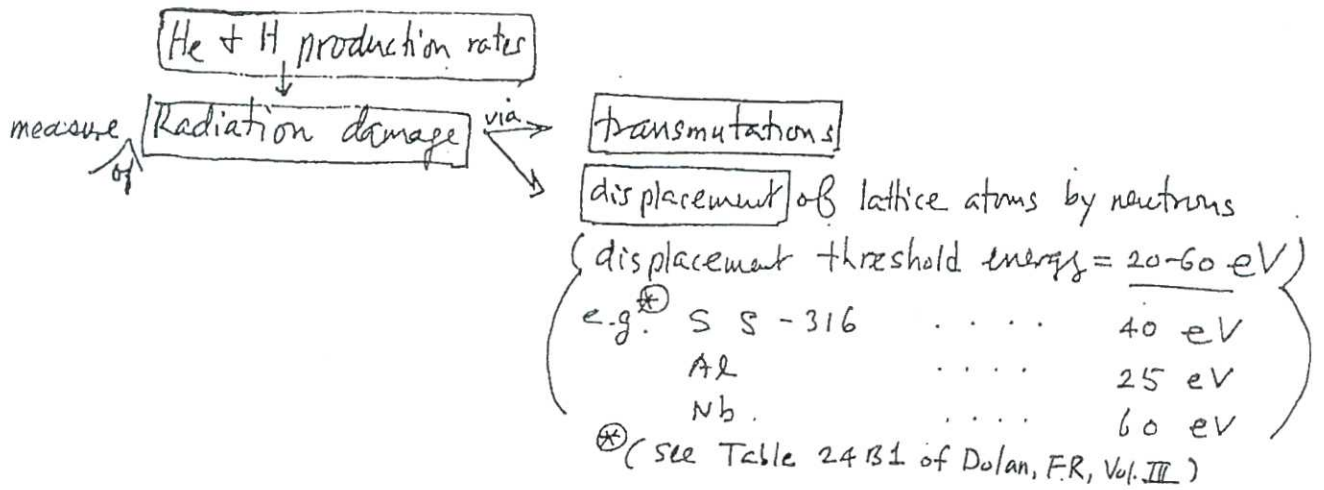 He + H production rates
measure of Radiation damage via transmutations
displacement of lattice atoms by neutrons
(displacement threshold energy = 20-60 eV)
e.g.* SS-316 .... 40 eV
Al .... 25 eV
Nb. .... 60 eV
*(see Table 24B1 of Dolan, F.R, Vol. III)